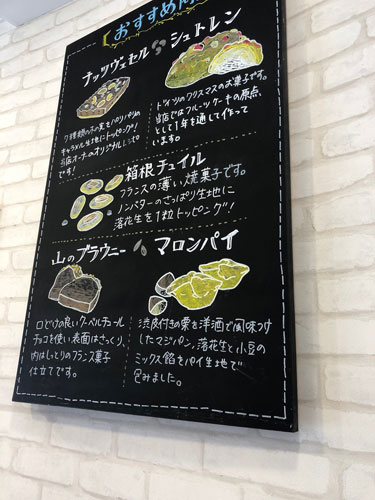 おすすめ
ナッツヴェセル
シュトレン
7種類の木の実をパリパリの
キャラメル生地にトッピング!
当店オーナーのオリジナルレシピ
です!
ドイツのクリスマスのお菓子です。
当店ではフルーツケーキの原点
として1年を通して作って
います。
箱根チュイル
フランスの薄い焼菓子です。
ノンバターのさっぱり生地に
落花生を1粒トッピング!
山のブラウニー
マロンパイ
口どけの良いクーベルチュール
チョコを使い表面はさっくり、
内はしっとりのフランス菓子
仕立てです。
渋皮付きの栗を洋酒で風味つけ
したマジパン、落花生と小豆の
ミックス餡をパイ生地で
包みました。